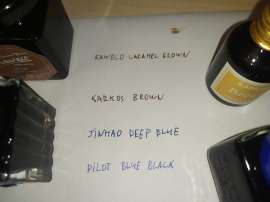 KAWECO CARAMEL BROWN
KARKOS BROWN
JINHAO DEEP BLUE
PILOT BLUE BLACK